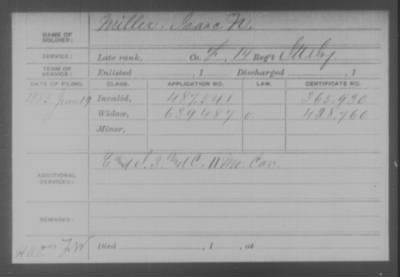 NAME OF SOLDIER: Miller, Isaac N.
SERVICE: Late rank, Co. F, 14 Reg't
TERM OF SERVICE: Enlisted , 1 Discharged , 1
DATE OF FILING. CLASS. APPLICATION NO. LAW. CERTIFICATE NO.
Invalid, 487.241 365.930
Widow, 639487 438.760
Minor,
ADDITIONAL SERVICES:
REMARKS:
Died , 1 , at